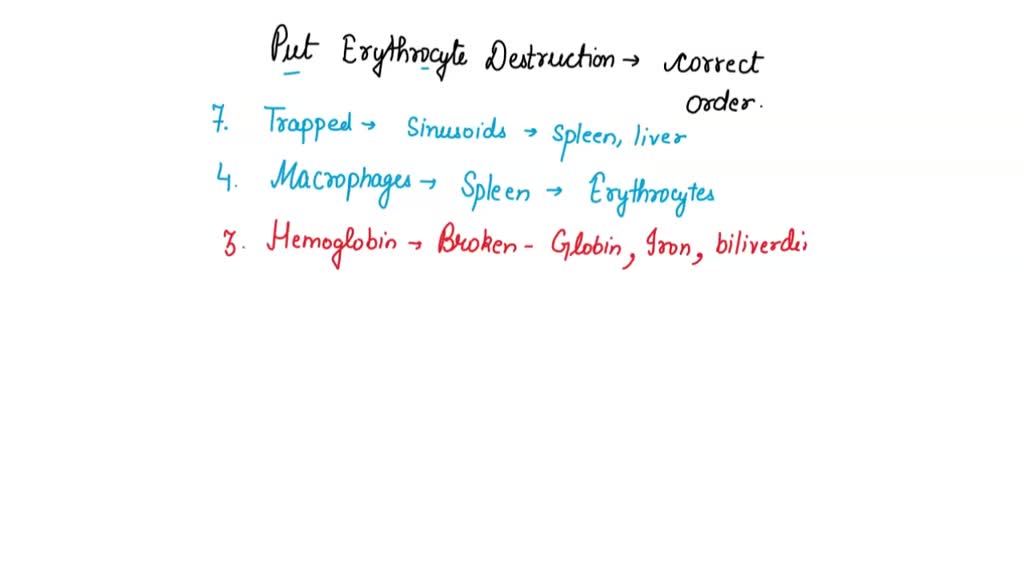 Put Erythrocyte Destruction → correct
order.
7. Trapped → Sinusoids → Spleen, liver
4. Macrophages → Spleen → Erythrocytes
3. Hemoglobin → Broken - Globin, Iron, biliverdi